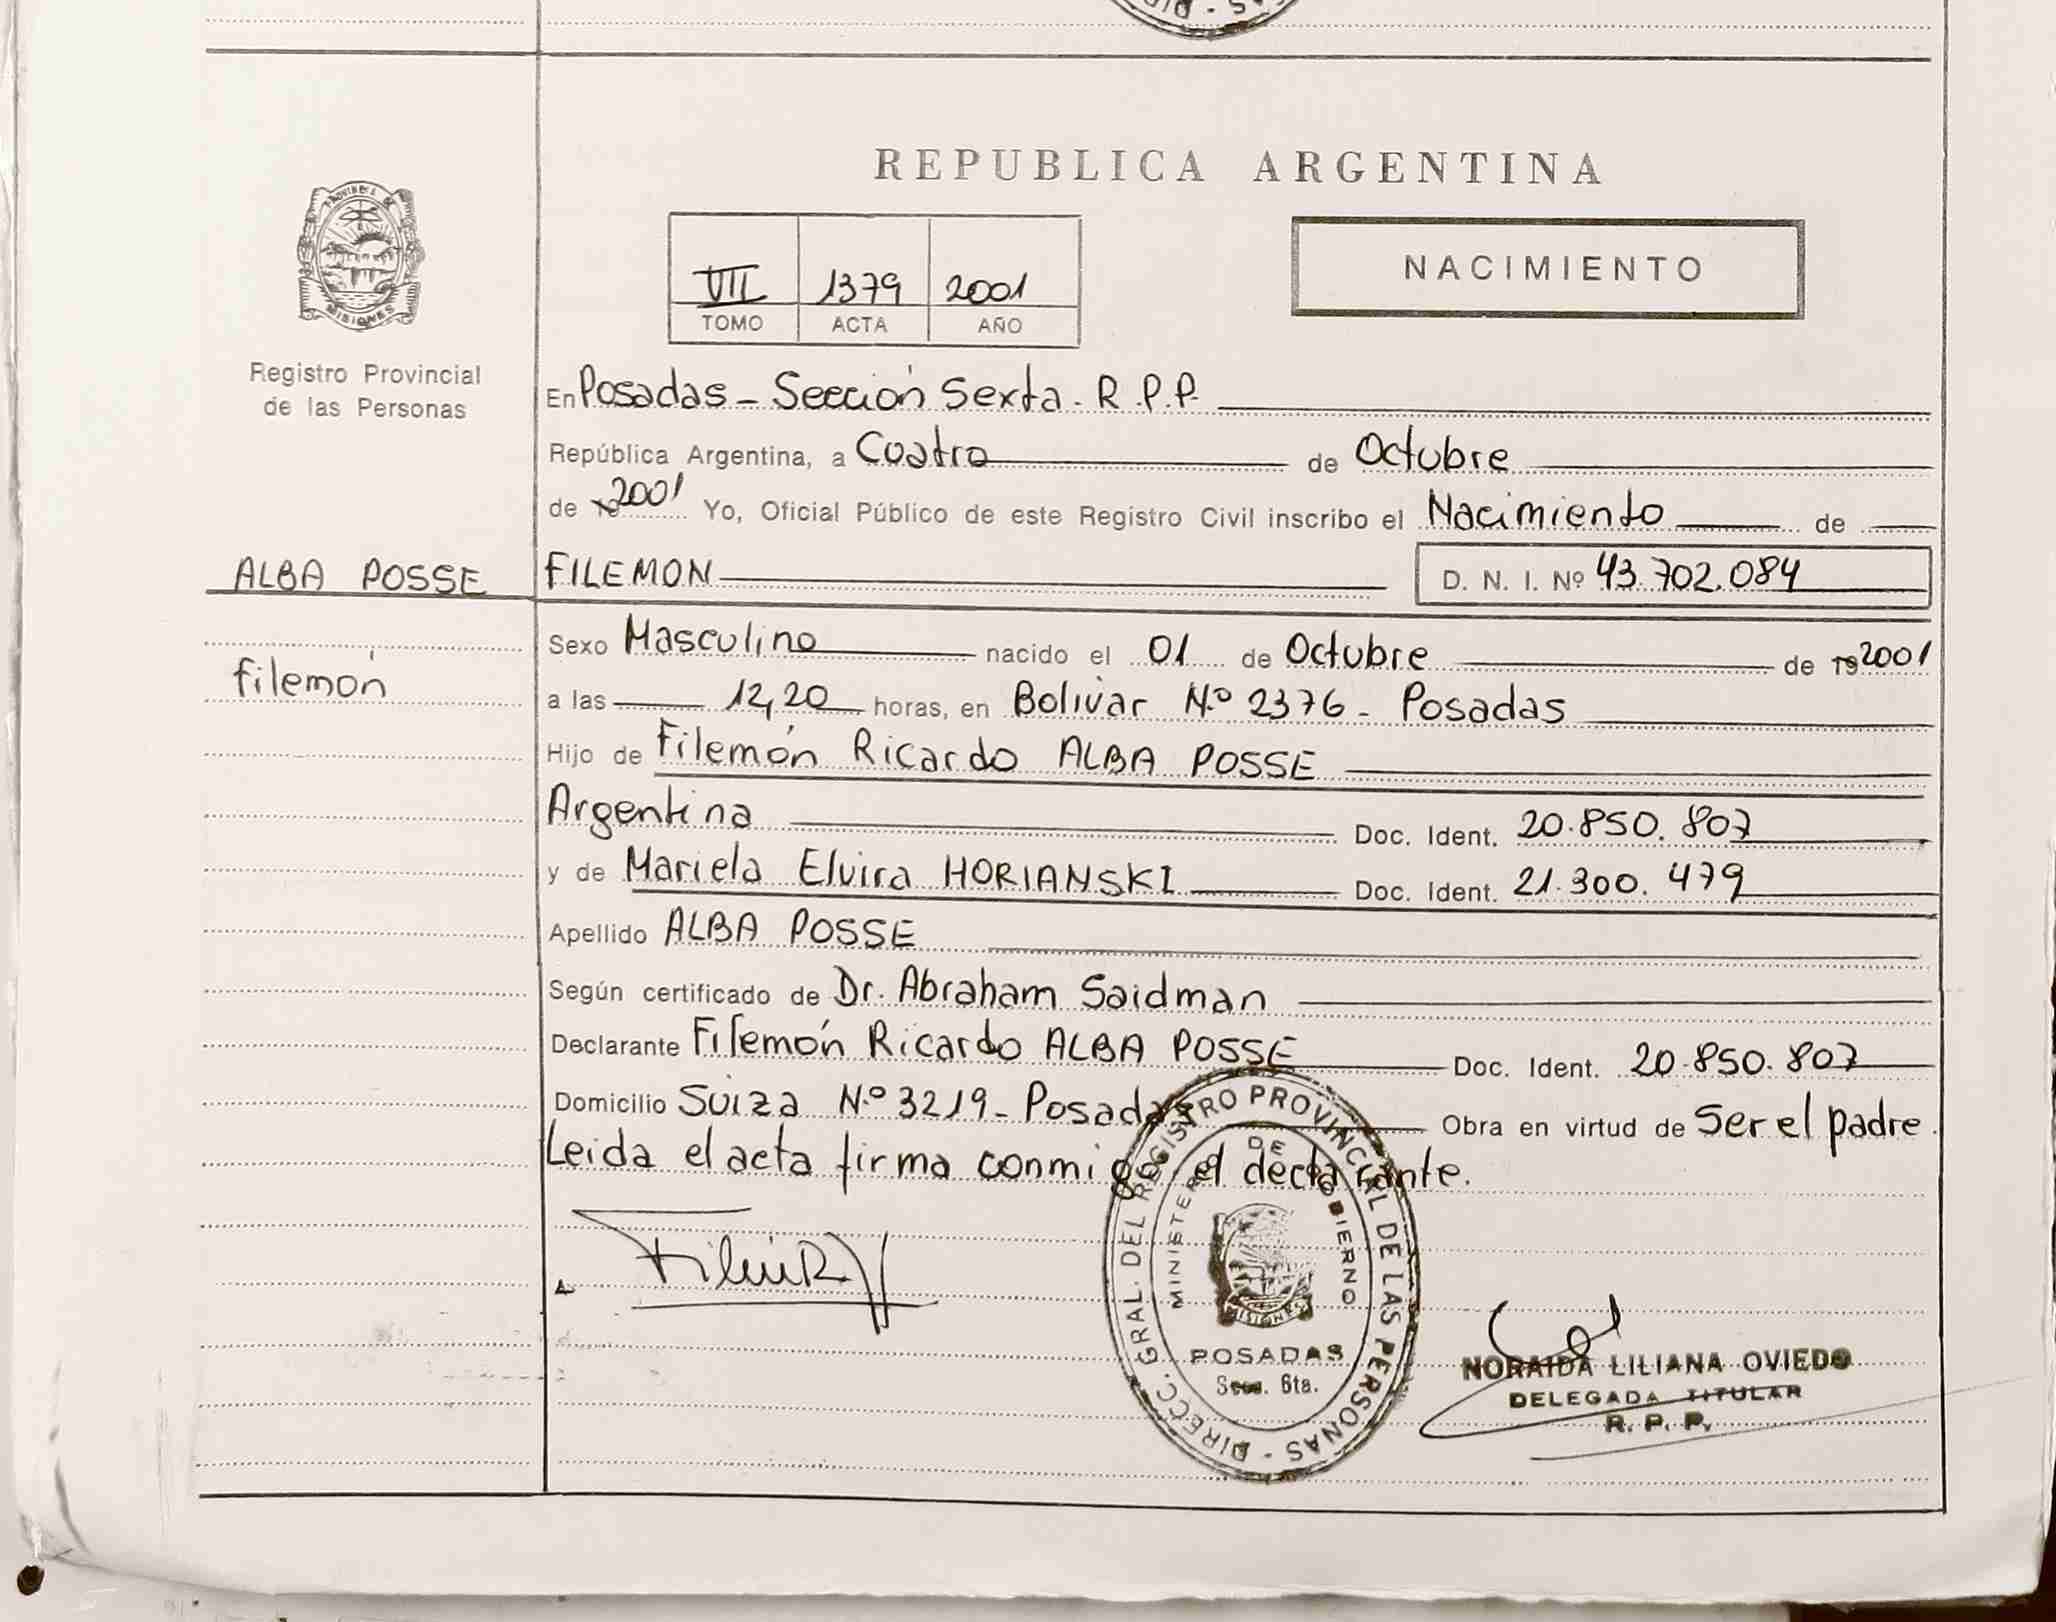 REPUBLICA ARGENTINA
PROVINCIA DE
MISIONES
Registro Provincial
de las Personas
VII 1379 2001
TOMO ACTA AÑO
NACIMIENTO
En Posadas - Sección Sexta - R.P.P.
República Argentina, a Cuatro de Octubre
de 19 2001 Yo, Oficial Público de este Registro Civil inscribo el Nacimiento de
ALBA POSSE FILEMON D. N. I. Nº 43.702.084
Sexo Masculino nacido el 01 de Octubre de 19 2001
filemón
a las 12,20 horas, en Bolivar N.º 2376 - Posadas
Hijo de Filemón Ricardo ALBA POSSE
Argentina Doc. Ident. 20.850.807
y de Mariela Elvira HORIANSKI Doc. Ident. 21.300.479
Apellido ALBA POSSE
Según certificado de Dr. Abraham Saidman
Declarante Filemón Ricardo ALBA POSSE Doc. Ident. 20.850.807
Domicilio Suiza N.º 3219 - Posadas Obra en virtud de Ser el padre.
Leida el acta firma conmigo el declarante.
DIRECC. GRAL. DEL REGISTRO PROVINCIAL DE LAS PERSONAS -
MINISTERIO DE GOBIERNO
MISIONES
POSADAS
Secc. 6ta.
NORAIDA LILIANA OVIEDO
DELEGADA TITULAR
R. P. P.